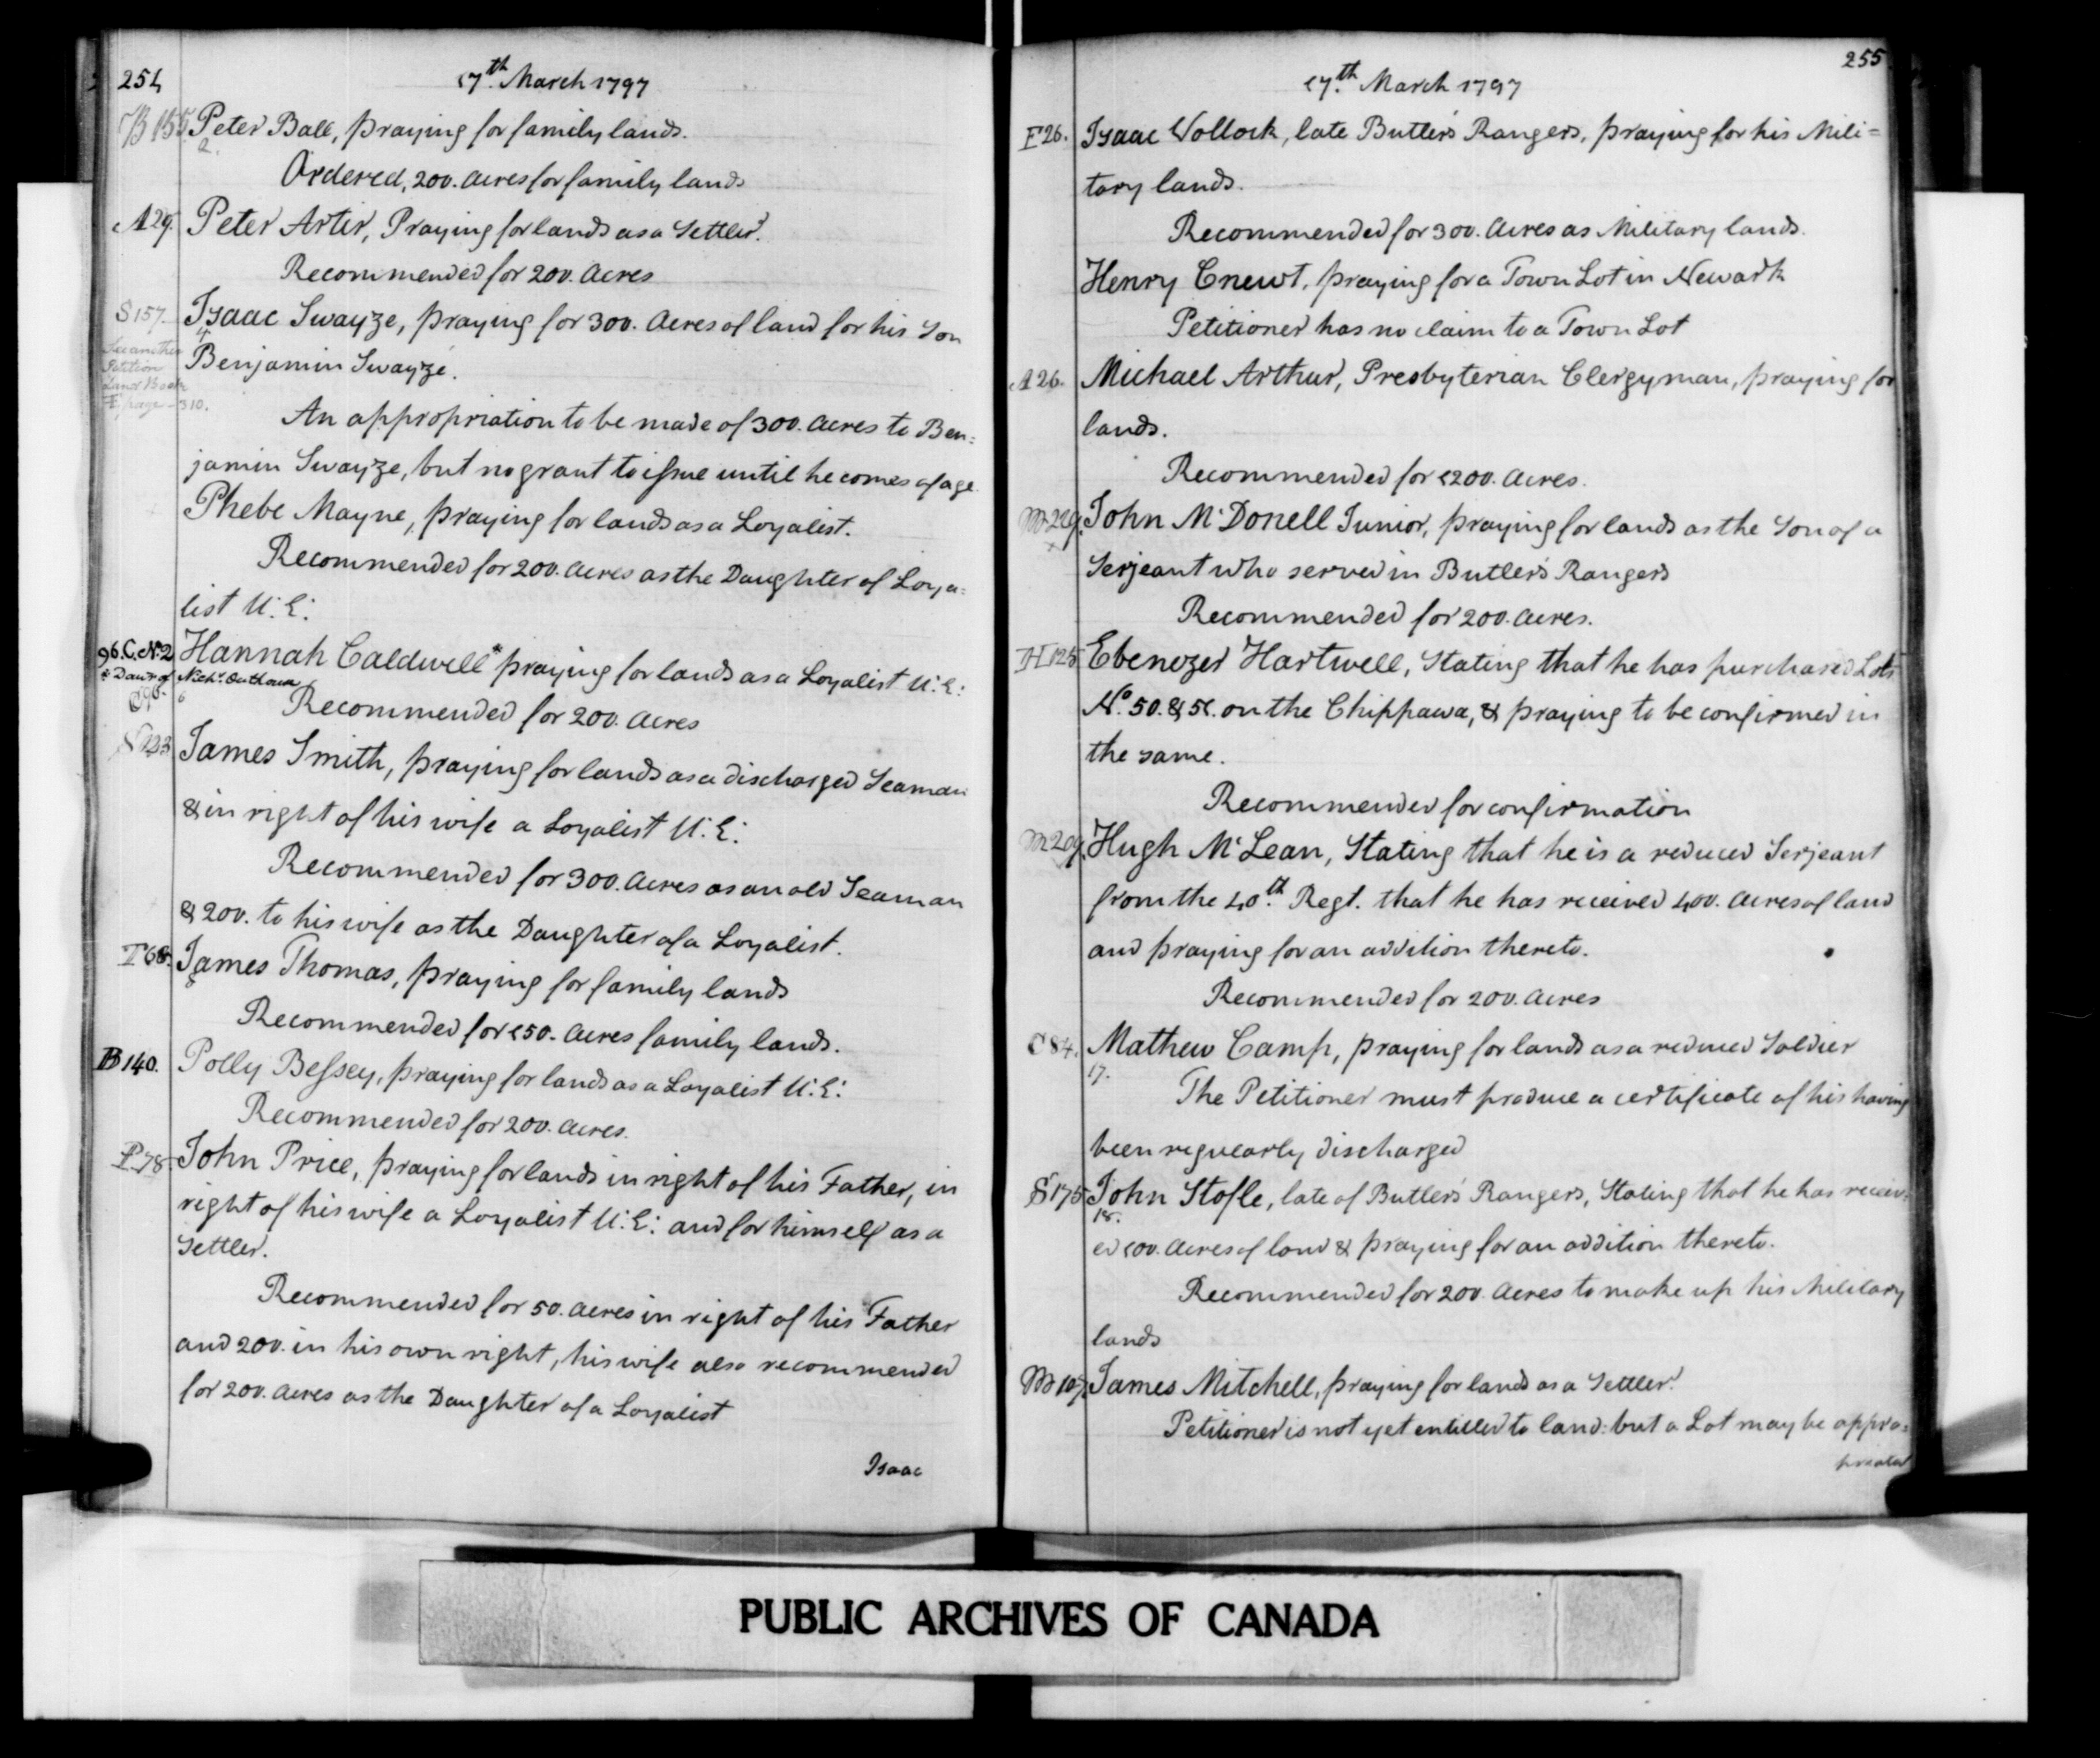 254
17th. March 1797
B 155. Peter Ball, praying for family lands.
2.
Ordered, 200. Acres for family lands
A 29. Peter Arter, Praying for lands as a Settler.
Recommended for 200. Acres
S 157. Isaac Swayze, praying for 300. Acres of land for his Son
4
See another
Petition
Land Book
E page 310.
Benjamin Swayze.
An appropriation to be made of 300. Acres to Ben=
jamin Swayze, but no grant to issue until he comes of age
Phebe Mayne, praying for lands as a Loyalist.
Recommended for 200. Acres as the Daughter of Loya=
list U:E:
96. C. No. 2 Hannah Caldwell* praying for lands as a Loyalist U:E:
* Daur of Nichs.
6
Recommended for 200. Acres
James Smith, praying for lands as a discharged Seaman
& in right of his wife a Loyalist U:E:
Recommended for 300. Acres as an old Seaman
& 200. to his wife as the Daughter of a Loyalist.
T 68. James Thomas, praying for family lands
Recommended for 150. Acres family lands.
B 140. Polly Bessey, praying for lands as a Loyalist U:E:
Recommended for 200. Acres.
P 78. John Price, praying for lands in right of his Father, in
right of his wife a Loyalist U:E: and for himself as a
Settler.
Recommended for 50. Acres in right of his Father
and 200. in his own right, his wife also recommended
for 200. Acres as the Daughter of a Loyalist
Isaac
255
17th. March 1797
F 26. Isaac Vollock, late Butler's Rangers, praying for his Mili=
tary lands.
Recommended for 300. Acres as Military lands.
Henry Cnewt, praying for a Town Lot in Newark
Petitioner has no claim to a Town Lot
A 26. Michael Arthur, Presbyterian Clergyman, praying for
lands.
Recommended for 1200. Acres.
John McDonell Junior, praying for lands as the Son of a
Serjeant who served in Butler's Rangers
Recommended for 200. Acres.
H 125 Ebenezer Hartwell, Stating that he has purchased Lots
No. 50. & 51. on the Chippawa, & praying to be confirmed in
the same.
Recommended for confirmation
M 209. Hugh McLean, Stating that he is a reduced Serjeant
from the 40th. Regt. that he has received 400. Acres of land
and praying for an addition thereto.
Recommended for 200. Acres
C 84. Mathew Camp, praying for lands as a reduced Soldier
17.
The Petitioner must produce a certificate of his having
been regularly discharged
S 175 John Stofle, late of Butler's Rangers, Stating that he has receiv=
18.
ed 100. Acres of land & praying for an addition thereto.
Recommended for 200. Acres to make up his Military
lands
M 107. James Mitchell, praying for lands as a Settler.
Petitioner is not yet entitled to land: but a Lot may be appro=
priated
PUBLIC ARCHIVES OF CANADA